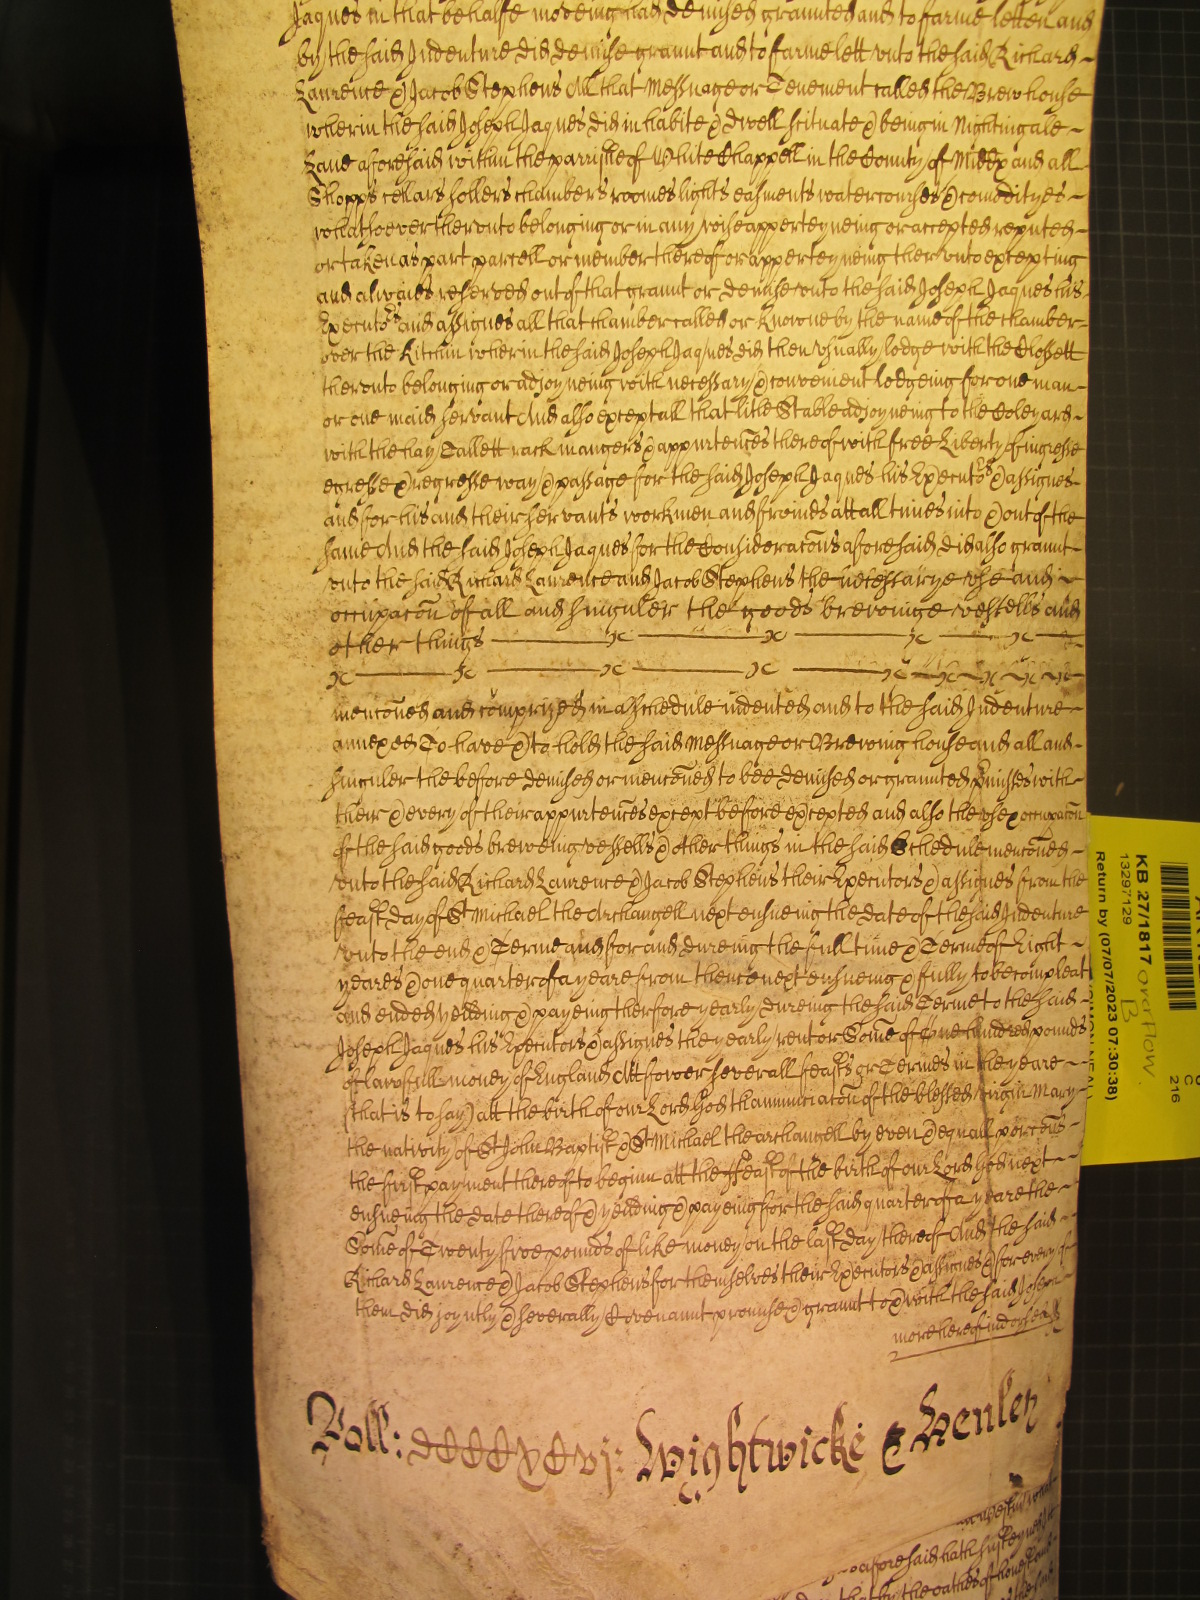 Jaques in that behalfe moveing had demised graunted and to farme letten and
by the said Indenture did demise graunt and to farme lett unto the said Richard
Laurence & Jacob Stephens All that Messuage or Tenement called the Brewhouse
wherin the said Joseph Jaques did inhabite & dwell scituate & being in Nightingale
Lane aforesaid within the parrishe of White Chappell in the County of Middx and all
Shopps cellars sollers chambers roomes lights easments watercourses & comodityes
whatsoever therunto belonging or in any wise apperteyneing or accepted reputed
or taken as part parcell or member therof or apperteyneing therunto excepting
and alwaies reserved out of that graunt or demise unto the said Joseph Jaques his
Executors and assignes all that chamber called or knowne by the name of the chamber
over the Kitchin wherin the said Joseph Jaques did then usually lodge with the Clossett
therunto belonging or adjoyneing with necessary & convenient lodgeing for one man
or one maid servant And also except all that litle Stable adjoyneing to the Coleyard
with the hay Tallett rack mangers & appurtences therof with free Liberty of ingresse
egresse & regresse way & passage for the said Joseph Jaques his Executors & assignes
and for his and their servants workmen and freindes att all times into & out of the
same And the said Joseph Jaques for the Consideracons aforesaid did also graunt
unto the said Richard Laurence and Jacob Stephens the necessarye use and
occupacon of all and singuler the goods brewinge vessells and
other things
menconed and comprized in a Schedule indented and to the said Indenture
annexed To have & to hold the said Messuage or Brewing house and all and
singuler the before demised or menconed to bee demised or graunted pmisses with
their & every of their appurtences except before excepted and also the use & occupacon
of the said goods breweing vessells & other things in the said Schedule menconed
unto the said Richard Laurence & Jacob Stephens their Executors & assignes from the
feast day of St Michael the Archangell next ensueing the date of the said Indenture
unto the end & Terme and for and dureing the full time & Terme of Eight
yeares & one quarter of a yeare from thence next ensueing & fully to be compleat
and ended yeilding & payeing therfore yearly dureing the said Terme to the said
Joseph Jaques his Executors & assignes the yearly rent or Some of One hundred pounds
of lawfull money of England Att fower severall feasts or Termes in the yeare
(that is to say) att the birth of our Lord God thannunciacon of the blessed virgin Mary
the nativity of St John Baptist & St Michael the archangell by even & equall porcons
the first payment therof to beginn att the Feast of the birth of our Lord God next
ensueing the date therof & yeilding & payeing for the said quarter of a yeare the
Some of Twenty five pounds of like money on the last day therof And the said
Richard Laurence & Jacob Stephens for themselves their Executors & assignes & for every of
them did joyntly & severally Covenannt promise & graunt to & with the said Joseph
more hereof indorsed
Roll: Wightwicke & Henley
aforesaid hath
that by the oathes of honest and
KB 27/1817 overflow
B
13297129
Return by (07/07/2023 07:30:38)
C
216